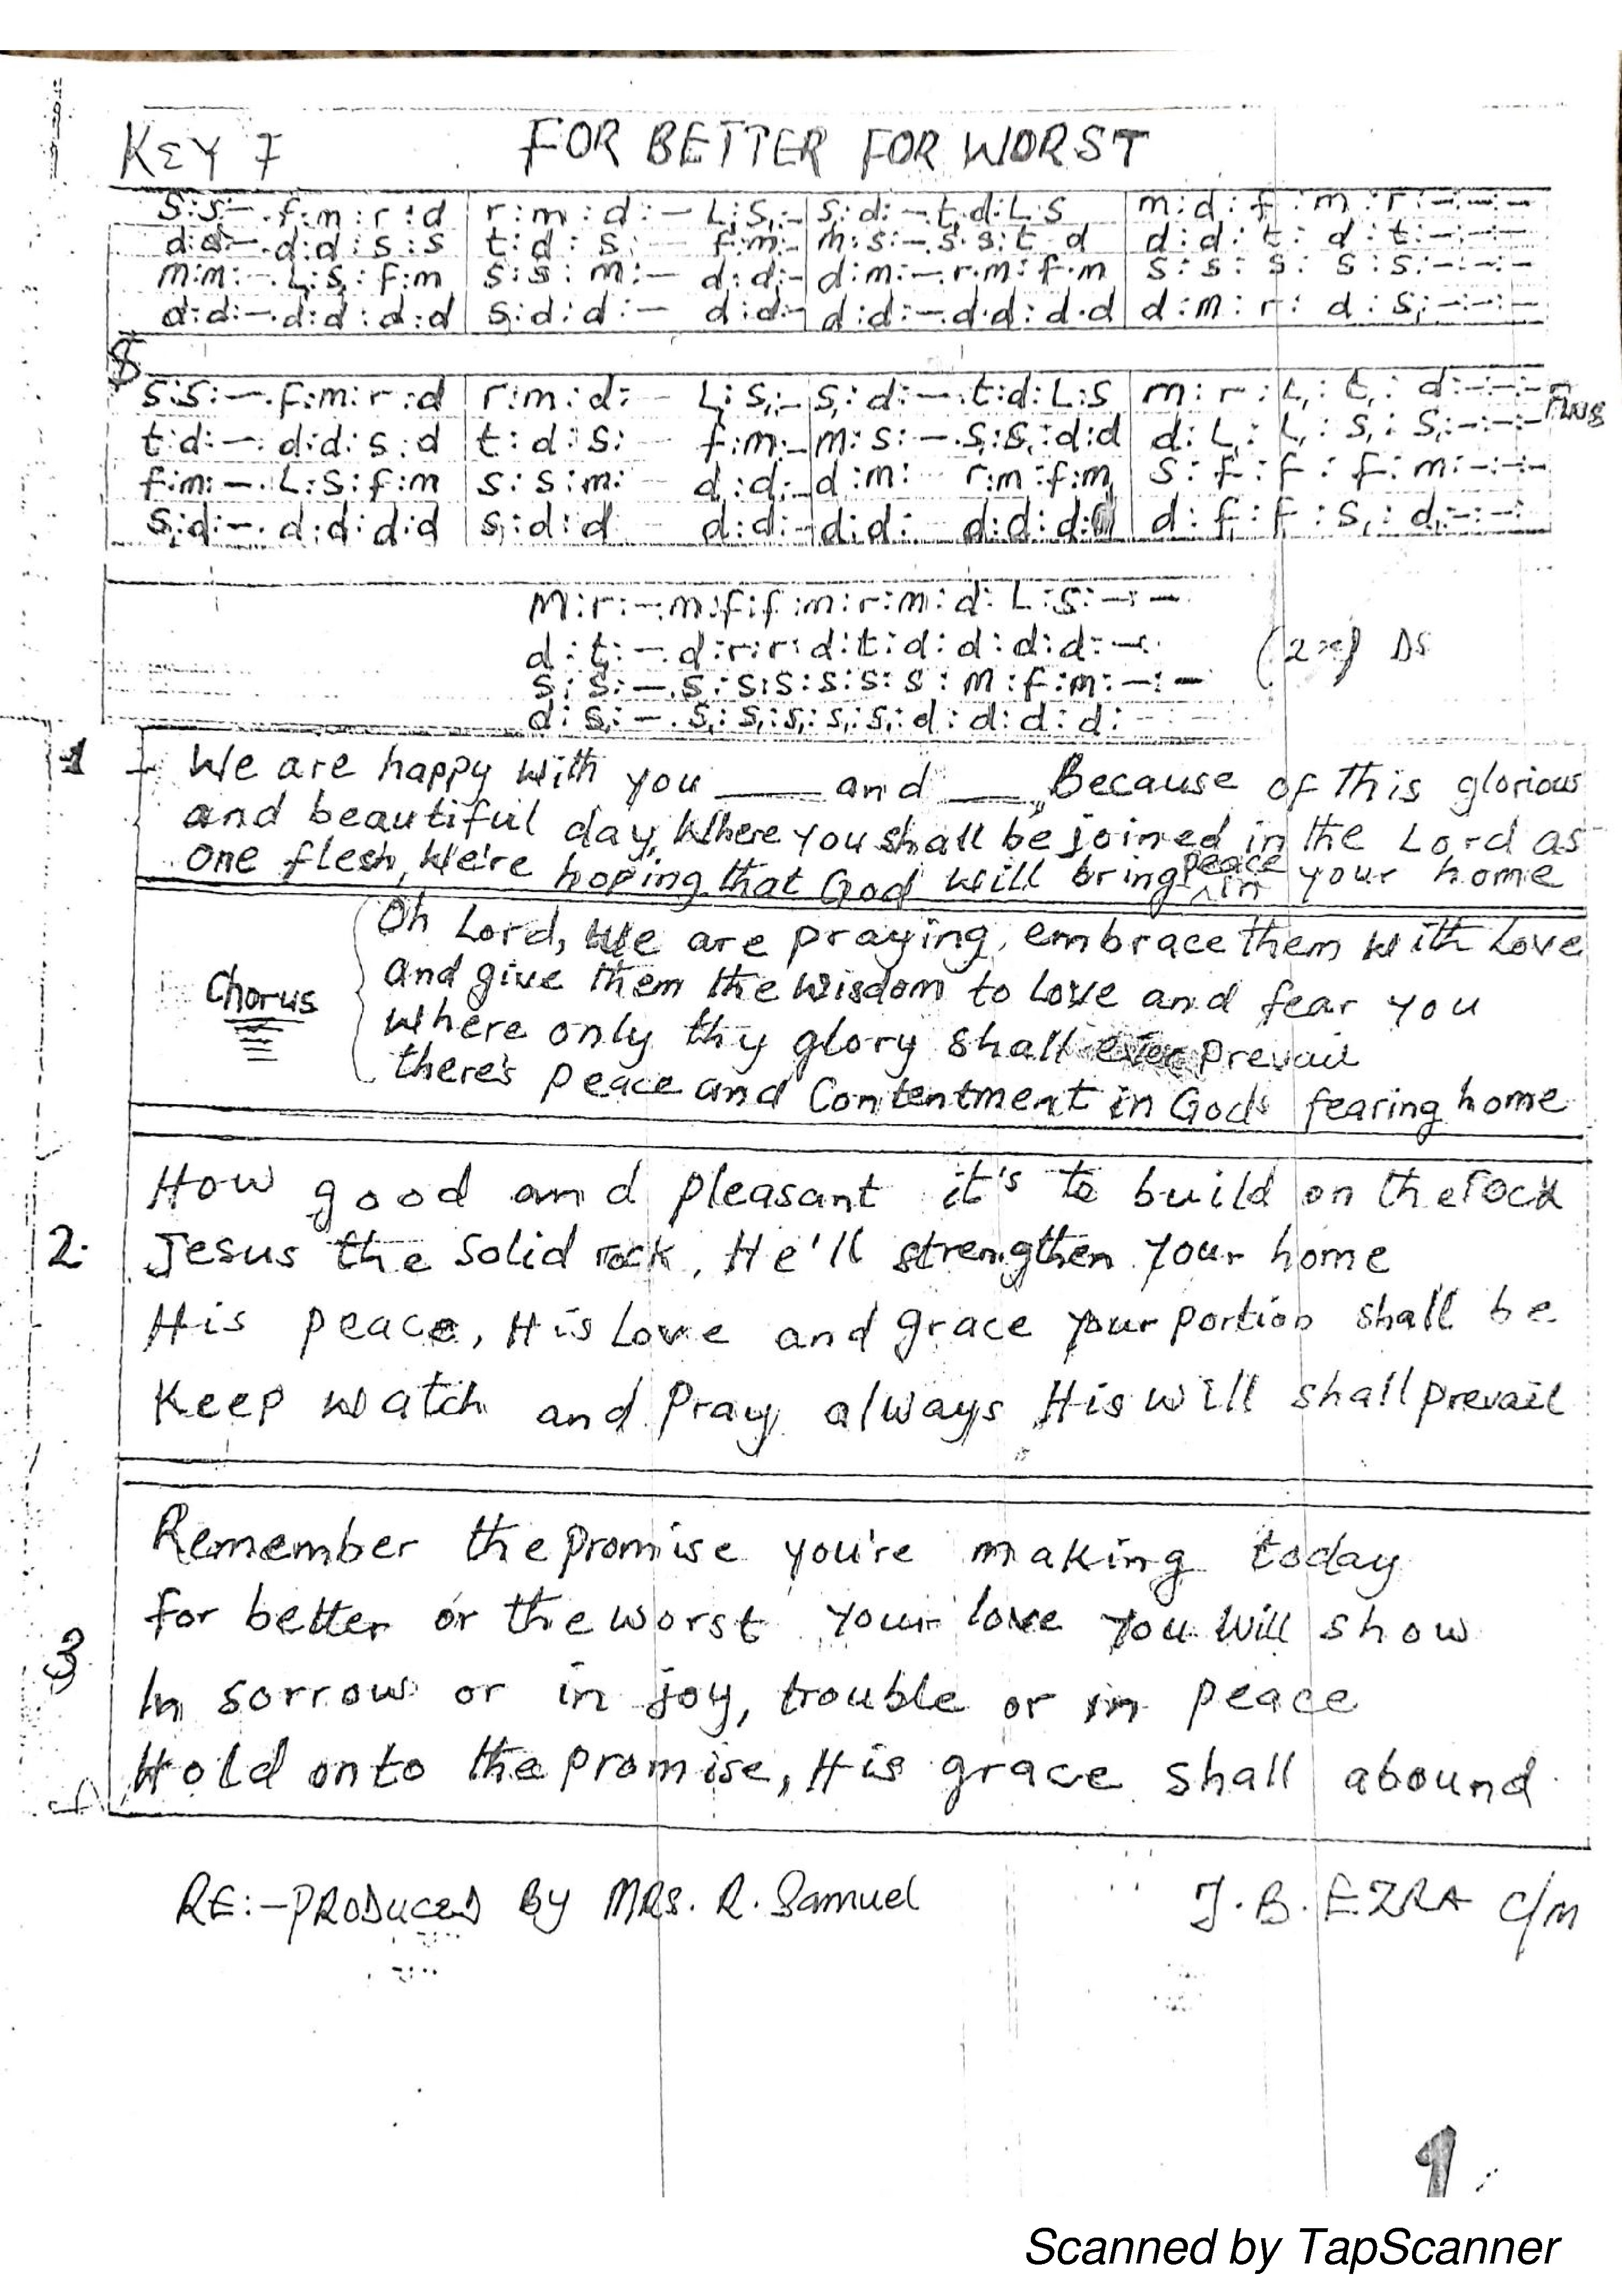 KEY F FOR BETTER FOR WORST
s:s:-.f:m:r:d | r:m:d:- L:S,:- | S:d:-.t.d:L:S | m:d:f:m:r:-:-:-
d:d:-.d:d:s:s | t:d:s: f:m:- | m:s:-.s.s:t d | d:d:t: d:t:-:-:-
m:m:-.L:S:f:m | s:s:m:- d:d:- | d:m:-.r.m:f.m | s:s:s: s:s:-:-:-
d:d:-.d:d:d:d | S:d:d:- d:d:- | d:d:-.d.d:d.d | d:m:r: d:S,:-:-:-
S:S:-.f:m:r:d | r:m:d:- L:S,:- | S,:d:-.t:d:L:S | m:r:L,:t,:d:-:-:- Fine
t:d:-.d:d:s:d | t:d:s: f:m:- | m:s:-.s:s,:d:d | d:L,:L,:S,:S,:-:-:-
f:m:-.L:S:f:m | s:s:m:- d:d:- | d:m: r:m:f:m | s:f:f:f:m:-:-:-
S,:d:-.d:d:d:d | S,:d:d - d:d:- | d:d:- d:d:d: | d:f,:f,:S,:d,:-:-:
M:r:-.m:f:f:m:r:m:d:L:S:-:-
d:t:-.d:r:r:d:t:d:d:d:d:-:
S:S:-.S:S:S:S:S:S:m:f:m:-:- (2x) DS
d:S,:-.S,:S,:S,:S,:S,:d:d:d:d:
1 We are happy with you ___ and ___, Because of this glorious
and beautiful day, Where you shall be joined in the Lord as
one flesh, We're hoping that God will bring peace in your home
Oh Lord, we are praying, embrace them with Love
Chorus and give them the wisdom to love and fear you
where only thy glory shall prevail
there's peace and Contentment in Gods fearing home
How good and pleasant it's to build on the rock
2. Jesus the solid rock, He'll strengthen your home
His peace, His Love and grace your portion shall be
Keep watch and pray always His will shall prevail
Remember the promise you're making today
for better or the worst your love you will show
3 In sorrow or in joy, trouble or in peace
Hold onto the promise, His grace shall abound
RE:-PRODUCED BY MRS. R. Samuel J.B. EZRA C/M
1
Scanned by TapScanner